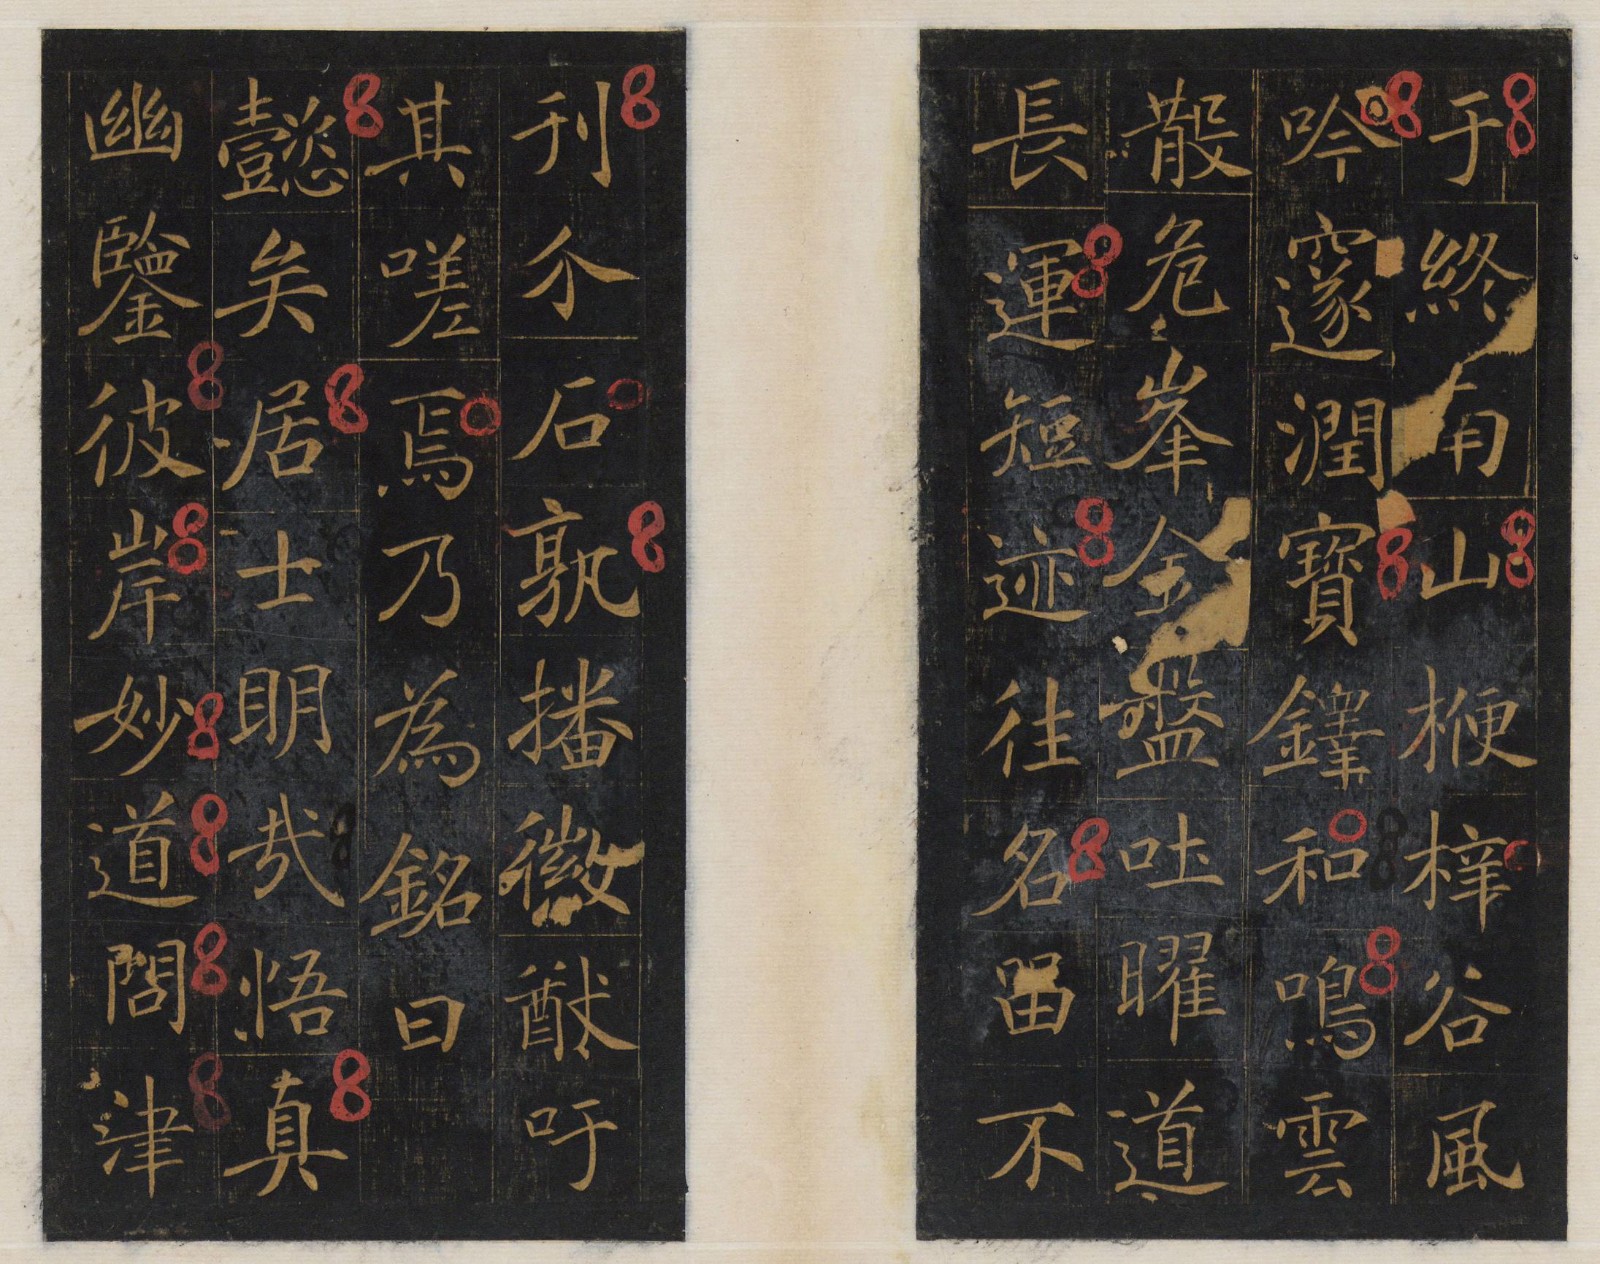 于終南山楩梓谷風
吟邃澗寶鐸和鳴雲
散危峯金盤吐曜道
長運短迹往名留不
刊介石孰播徽猷吁
其嗟焉乃為銘曰
懿矣居士明哉悟真
幽鑒彼岸妙道問津